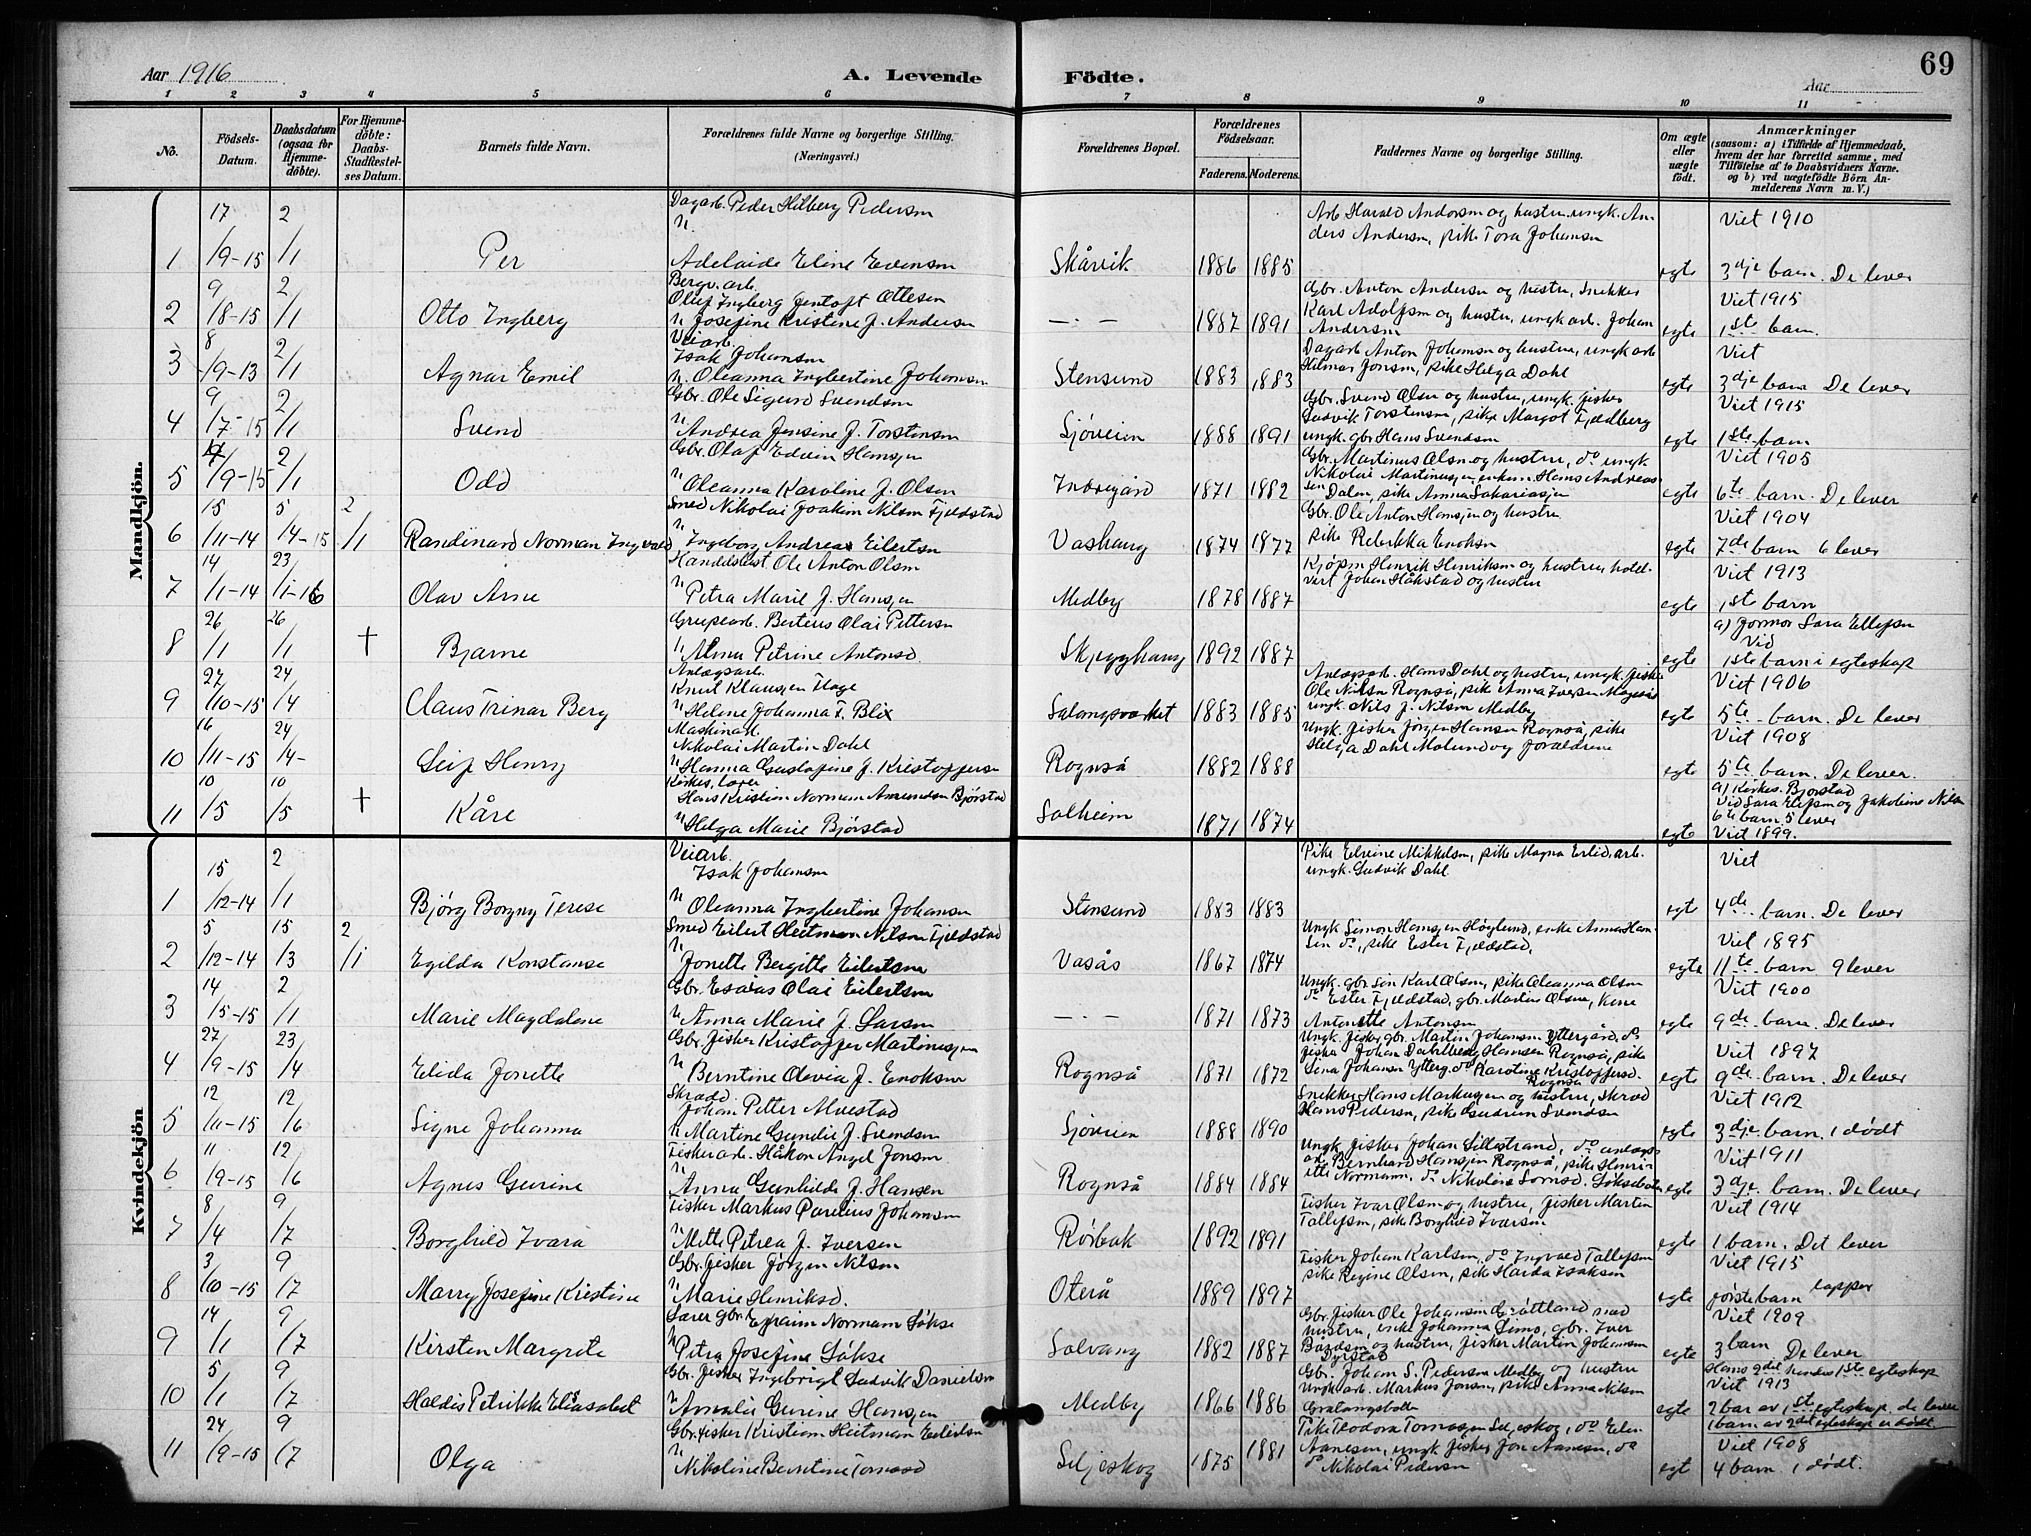 69
Aar 1916
A. Levende Födte.
Aar
1 2 3 4 5 6 7 8 9 10 11
No.
Födsels-Datum.
Daabsdatum (ogsaa for Hjemme-döbte).
For Hjemme-döbte: Daabs-Stadfæstel-ses Datum.
Barnets fulde Navn.
Forældrenes fulde Navne og borgerlige Stilling. (Næringsvei.)
Forældrenes Bopæl.
Forældrenes Födselsaar.
Faderens. Moderens.
Faddernes Navne og borgerlige Stilling.
Om ægte eller uægte födt.
Anmærkninger
(saasom: a) i Tilfælde af Hjemmedaab, hvem der har forrettet samme, med Tilföielse af to Daabsvidners Navne. og b) ved uægtefödte Börn An-melderens Navn m. V.)
Mandkjön.
17 2 Dagarb. Peder Hilberg Pedersen Arb Harald Andersen og hustru, ungk. An- Viet 1910
ders Andersen, pike Tora Johansen
1 /9-15 /1 Per Adelaide Eline Evensen Skårvik 1886 1885 egte 3dje barn. De lever
9 2 Bergv. arb. Gbr. Anton Andersen og hustru, snekker
Oluf Ingberg Jentoft Ottesen Viet 1915
2 /8-15 /1 Otto Ingberg H. Josefine Kristine J. Andersen — . — 1887 1891 Karl Adolfsen og hustru, ungk arb. Johan Andersen egte 1ste barn.
8 2 Veiarb. Isak Johansen Dagarb Anton Johansen og hustru, ungk arb Viet
3 /9-13 /1 Agnar Emil H. Oleanna Ingbertine Johansen Stensund 1883 1883 Hilmar Jensen, pike Helga Dahl egte 3dje barn De lever
9 2 Gbr. Ole Sigurd Svendsen Gbr. Svend Olsen og hustru, ungk. fisker Viet 1915
4 /7-15 /1 Svend H. Andrea Jensine J. Torstensen Sjøveien 1888 1891 Ludvik Torstensen, pike Margot Fjeldberg ungk. gbr Hans Svendsen egte 1ste barn
2 Gbr. Olaf Edvin Hansen Gbr. Martinus Olsen og hustru, do ungk Viet 1905
5 /9-15 /1 Odd H. Oleanna Karoline J. Olsen Indregård 1871 1882 Nikolai Martinussen, enkem Hans Andreas sen Dalen, pike Anna Sakariassen egte 6te barn. De lever
15 5 2 Smed Nikolai Joakim Nilsen Fjeldstad Gbr. Ole Anton Hansen og hustru Viet 1904
6 /11-14 /4-15 /1 Randinard Norman Ingvald H. Ingeborg Andreas Eilertsen Vashaug 1874 1877 pike Rebekka Enoksen egte 7de barn 6 lever
14 23 Handelsbest. Ole Anton Olsen Kjøpm Henrik Henriksen og hustru, hotel- Viet 1913
7 /1-14 /1-16 Olav Arne H. Petra Marie J. Hansen Medby 1878 1887 vert Johan Håkstad og hustru egte 1ste barn
26 26 Grupearb. Berteus Olai Pettersen a) Jormor Sara Ellefsen
8 /1 /1 † Bjarne H. Alma Petrine Antonsd. Skjegghaug 1892 1887 egte Vid 1ste barn i egteskap
27 24 Anlægsarb. Knut Klausen Hage Anlægsarb. Hans Dahl og hustru, ungk. fisker Viet 1906
9 /10-15 /4 Claus Trinar Berg H. Helene Johanna F. Blix Salangsverket 1883 1885 Ole Nilsen Rognså, pike Anna Iversen ungk. Nils J. Nilsen Medby egte 5te barn. De lever
16 24 Maskinarb. Nikolai Martin Dahl Ungk. fisker Jørgen Hansen Rognså, pike Viet 1908
10 /11-15 /4- Leif Henry H. Hanna Gustafine J. Kristoffersen Rognså 1882 1888 Helga Dahl Molund og foreldrene egte 5te barn. De lever.
10 10 Kirkes, lærer Hans Kristian Normann Amundsen Bjørstad a) Kirkes. Bjørstad Vid Sara Elefsen og Jakobine Nilsen
11 /5 /5 † Kåre H. Helga Marie Bjørstad Solheim 1871 1874 egte 6te barn 5 lever Viet 1899.
Kvindekjön
15 2 Veiarb. Isak Johansen Pike Elvine Mikkelsen, pike Magna Erlid, arb. ungk. Ludvik Dahl Viet
1 /12-14 /1 Bjørg Borgny Terese H. Oleanna Ingbertine Johansen Stensund 1883 1883 egte 4de barn. De lever
5 15 2 Smed Eilert Heitmann Nilsen Fjeldstad Ungk Simon Hansen Høglund, enke Anna Han- Viet 1895
2 /12-14 /3 /1 Egilda Konstanse H. Jonette Bergitte Eilertsen Vasås 1867 1874 sen do, pike Ester Fjeldstad, egte 11te barn 9 lever
14 2 Gbr. Esaias Olai Eilertsen Ungk. gbr søn Karl Olsen, pike Oleanna Olsen Viet 1900
3 /5-15 /1 Marie Magdalene H. Anna Marie J. Larsen — . — 1871 1873 do Ester Fjeldstad, gbr. Martin Olsen, kone Antonette Antonsen egte 9de barn. De lever
27 23 Gbr. fisker Kristoffer Martinussen Ungk. fisker gbr. Martin Johansen Yttergård, do Viet 1897
4 /9-15 /4 Elida Jonette H. Berntine Olevia J. Enoksen Rognså 1871 1872 fisker Johan Dahlberg Hansen Rognså, pike Lina Johansen Ytterg. do Karoline Kristoffersd. Rognså egte 9de barn. De lever
12 12 Skrædd. Johan Petter Alvestad Snekker Hans Markussen og hustru, skræd Viet 1912
5 /11-15 /6 Signe Johanna H. Martine Gundie J. Svendsen Sjøveien 1888 1890 Hans Pedersen, pike Gudrun Svendsen egte 3dje barn, 1 dödt
11 12 Fiskerarb. Håkon Angel Jensen Ungk fisker Johan Lillestrand, do anlægs Viet 1911
6 /9-15 /6 Agnes Gurine H. Anna Gunhilde J. Hansen Rognså 1884 1884 arb. Bernhard Hansen Rognså, pike Henri- ette Normann, egte 3dje barn. De lever
8 9 Fisker Markus Parelius Johansen Fisker Ivar Olsen og hustru, fisker Martin Viet 1914
7 /4 /7 Borghild Ivara H. Mette Petrea J. Iversen Rørbak 1892 1891 Tollefsen, pik Borghild Ivarsen egte 1 barn. Det lever
3 9 Gbr. fisker Jörgen Nilsen Fisker Johan Karlsen, do Ingvald Tollefsen Viet 1915
8 /10-15 /7 Marry Josefine Kristine H. Marie Henriksd. Oterå 1889 1897 pike Regine Olsen, pik Harda Isaksen egte förstebarn lapper
14 9 Lærer gbr. Efraim Normann Søkse Gbr. fisker Ole Johansen Grøttland med Viet 1909
9 /1 /7 Kirsten Margrete H. Petra Josefine Søkse Solvang 1882 1887 hustru, enke Johanna Simo, gbr. Iver Bårdsen og hustru, fisker Martin Johansen Dyrstad egte 3 barn De lever
5 9 Gbr. fisker Ingebrigt Ludvik Danielsen Gbr. Johan S. Pedersen Medby og hustru Hans 2det hendes 1ste egteskap
Viet 1913
10 /1 /7 Haldis Petrikke Eliasabet H. Amalie Gurine Hansen Medby 1866 1886 Ungk arb. Markus Jensen, pike Anna Nilsen Gratangsbotten egte 2 bar av 1ste egteskap. de lever 1 barn av 2det egteskap er dödt
24 9 Gbr. fisker Kristian Heitman Eilertsen Pike Teodora Tomassen Seljeskog, do Elen Viet 1908
11 /9-15 /7 Olga H. Nikoline Berntine Tomasd Seljeskog 1875 1881 Aanesen, ungk fisker Jon Aanesen, do do Nikolai Pedersen egt 4 barn. 1 dödt.